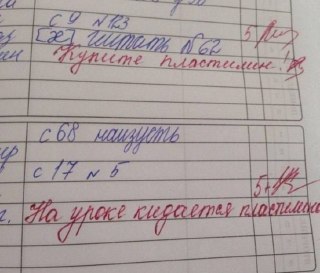 с 9 № 123
[х] читать № 62 5
Купите пластилин!
с 68 наизусть
с 17 № 5 5+
На уроке кидается пластилино